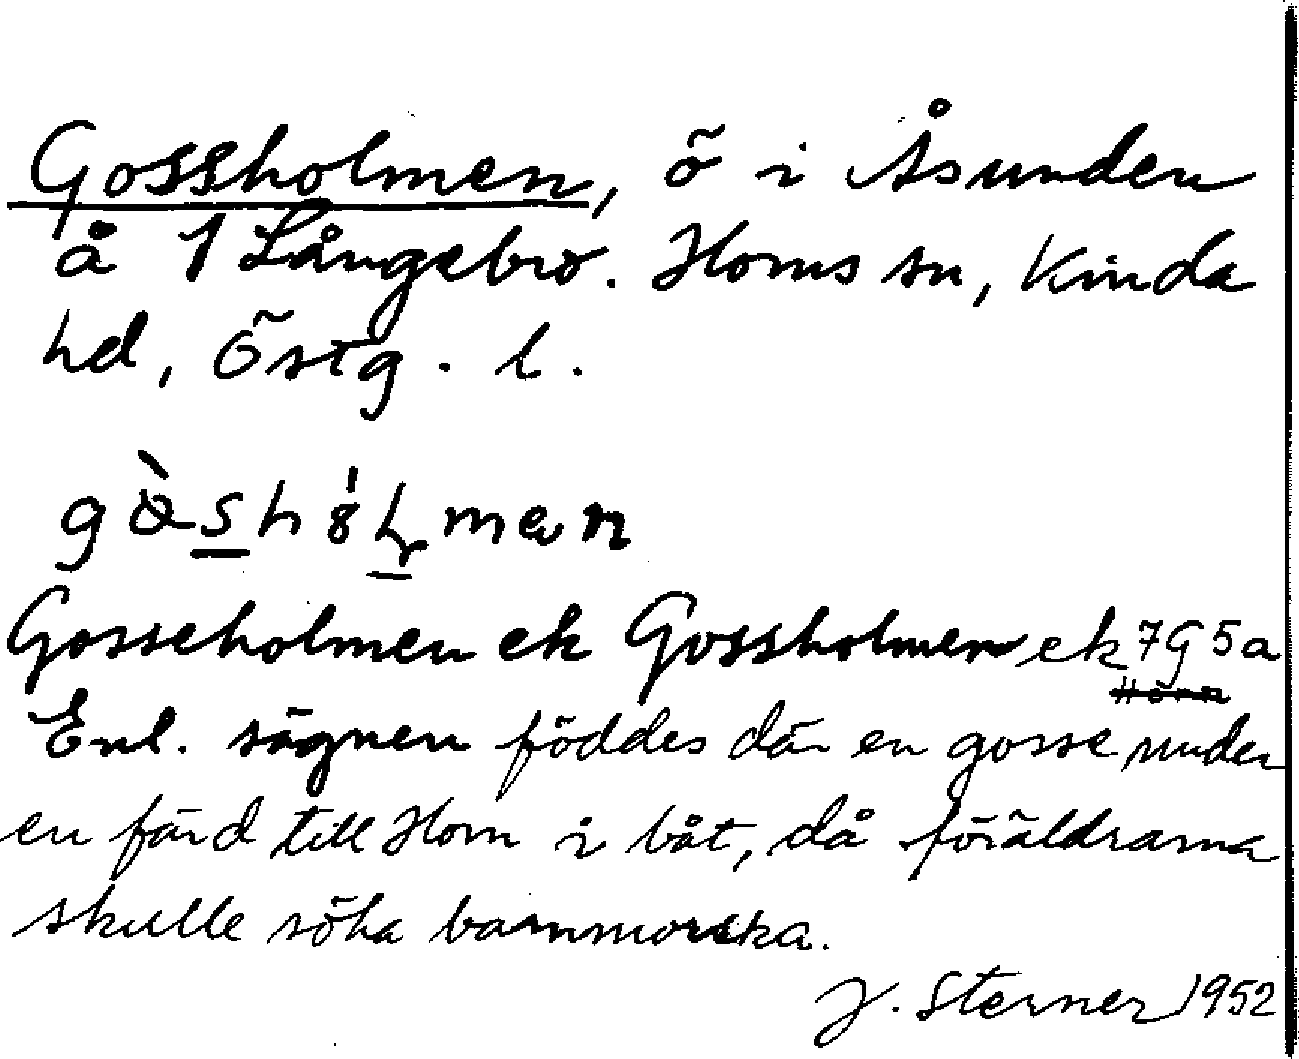 Gossholmen, ö i Åsunden
å 1 Långebro. Horns sn, Kinda
hd, Östg. l.
Gosseholmen ek Gossholmen ek 7G5a
Horn
Enl. sägnen föddes där en gosse under
en färd till Horn i båt, då föräldrarna
skulle söka barnmorska.
J. Sterner 1952